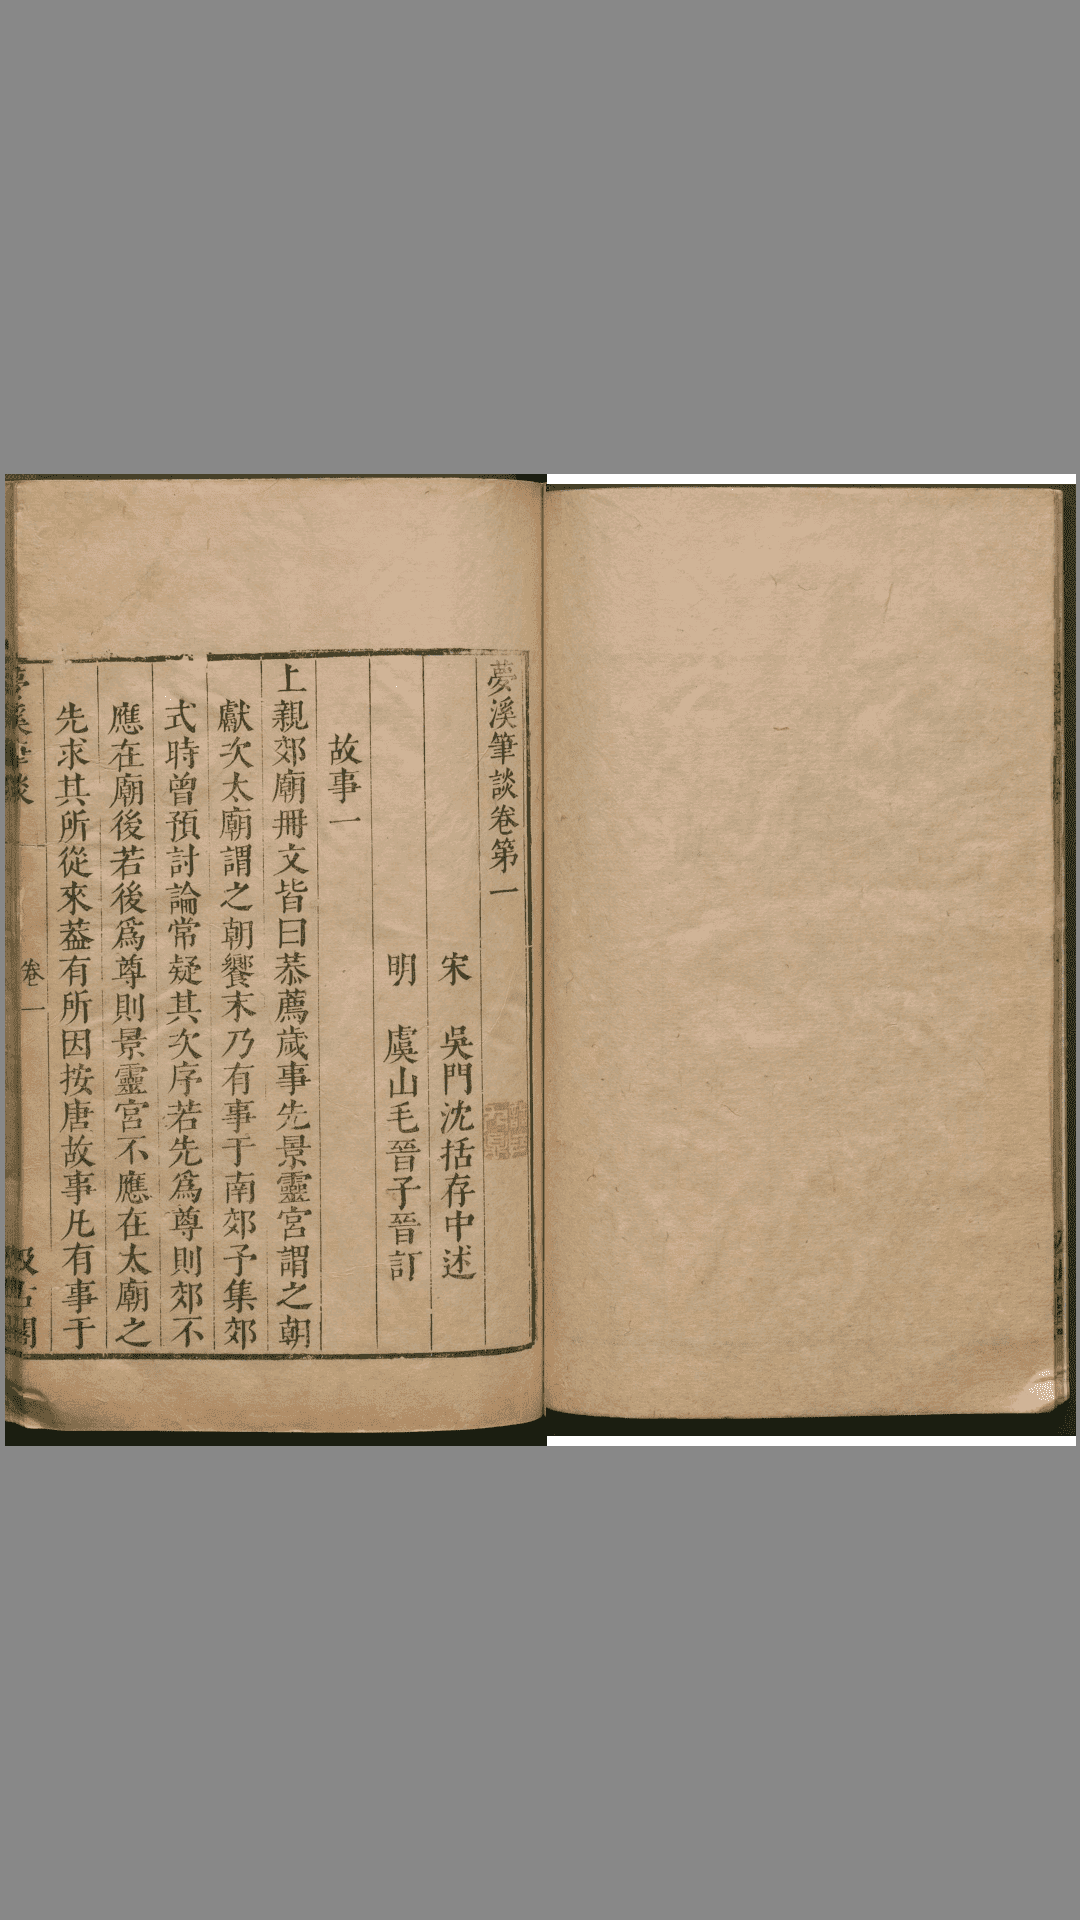 夢溪筆談卷第一
宋 吳門沈括存中述
明 虞山毛晉子晉訂
故事一
上親郊廟冊文皆曰恭薦歲事先景靈宮謂之朝
獻次太廟謂之朝饗末乃有事于南郊予集郊
式時曾預討論常疑其次序若先爲尊則郊不
應在廟後若後爲尊則景靈宮不應在太廟之
先求其所從來葢有所因按唐故事凡有事于
夢溪筆談 卷一 汲古閣